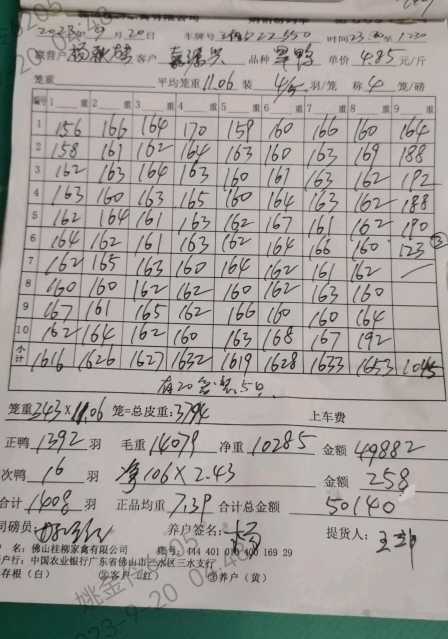 2023年9月20日 车牌号 时间23 1230
客户 品种 黑鸭 单价 4.85 元/斤
笼重 平均笼重 11.06 装 4/5 羽/笼 称 4 笼/磅
编号 1 重 2 重 3 重 4 重 5 重 6 重 7 重 8 重 9 重
1 156 166 164 170 159 160 166 160 164
2 158 161 162 164 163 160 163 169 188
3 162 163 164 163 160 161 163 162 192
4 163 160 163 165 160 164 163 162 188
5 162 164 161 163 162 167 161 162 190
6 164 162 161 163 162 164 166 160 123 ③
7 162 165 163 160 164 162 161 162
8 160 160 162 162 160 162 163 160
9 167 161 165 162 166 160 160 164
10 162 164 162 160 163 168 167 192
小计 1616 1626 1627 1632 1619 1628 1633 1653 1045
有20笼装5只
笼重 343 × 11.06 笼=总皮重: 3794 上车费
正鸭 1392 羽 毛重 14079 净重 10285 金额 49882
次鸭 16 羽 净106×2.43 金额 258
合计 1408 羽 正品均重 7.39 合计总金额 50140
司磅员: 养户签名: 提货人:
户 名: 佛山桂柳家禽有限公司 账号: 444 401 010 400 169 29
户行: 中国农业银行广东省佛山市三水区三水支行
存根(白) ②客户(红) ③养户(黄)